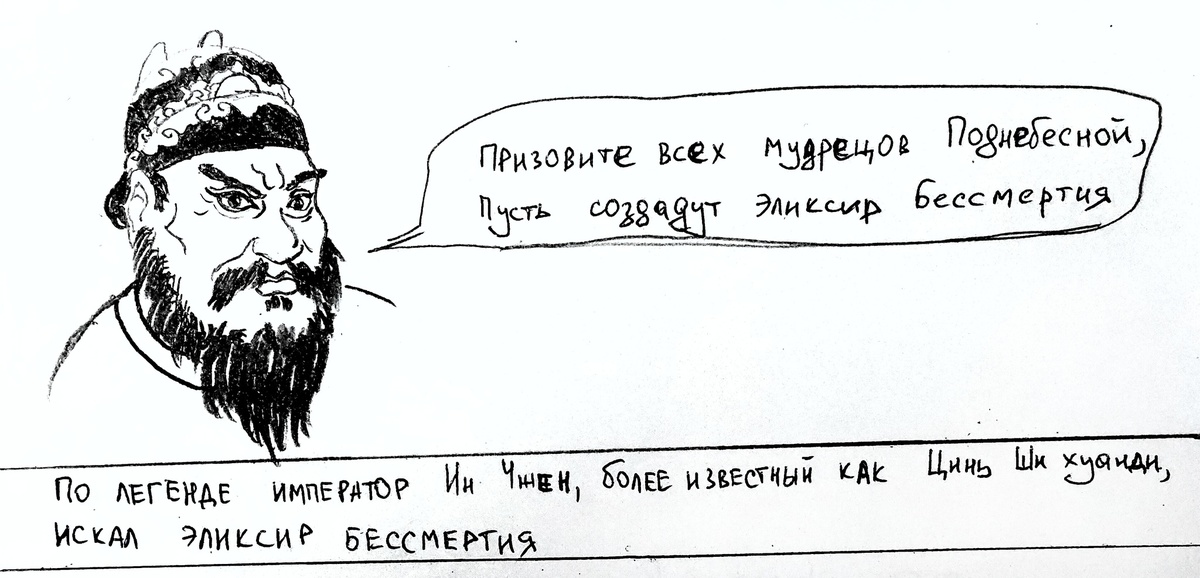 Призовите всех мудрецов Поднебесной,
Пусть создадут эликсир бессмертия
По легенде император Ин Чжен, более известный как Цинь Ши хуанди,
искал эликсир бессмертия